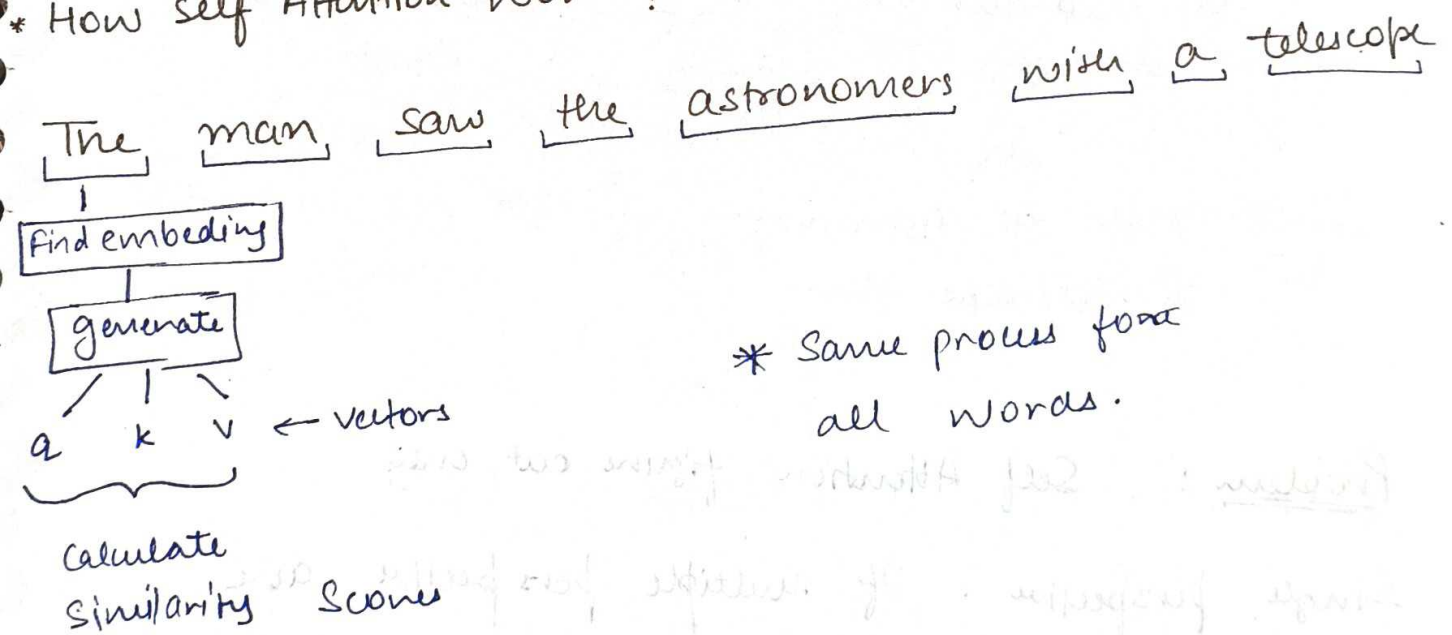 * How Self Attention
The man saw the astronomers with a telescope
Find embeding
generate
q k v ← vectors
* Same process for
all words.
Calculate
Similarity Scores